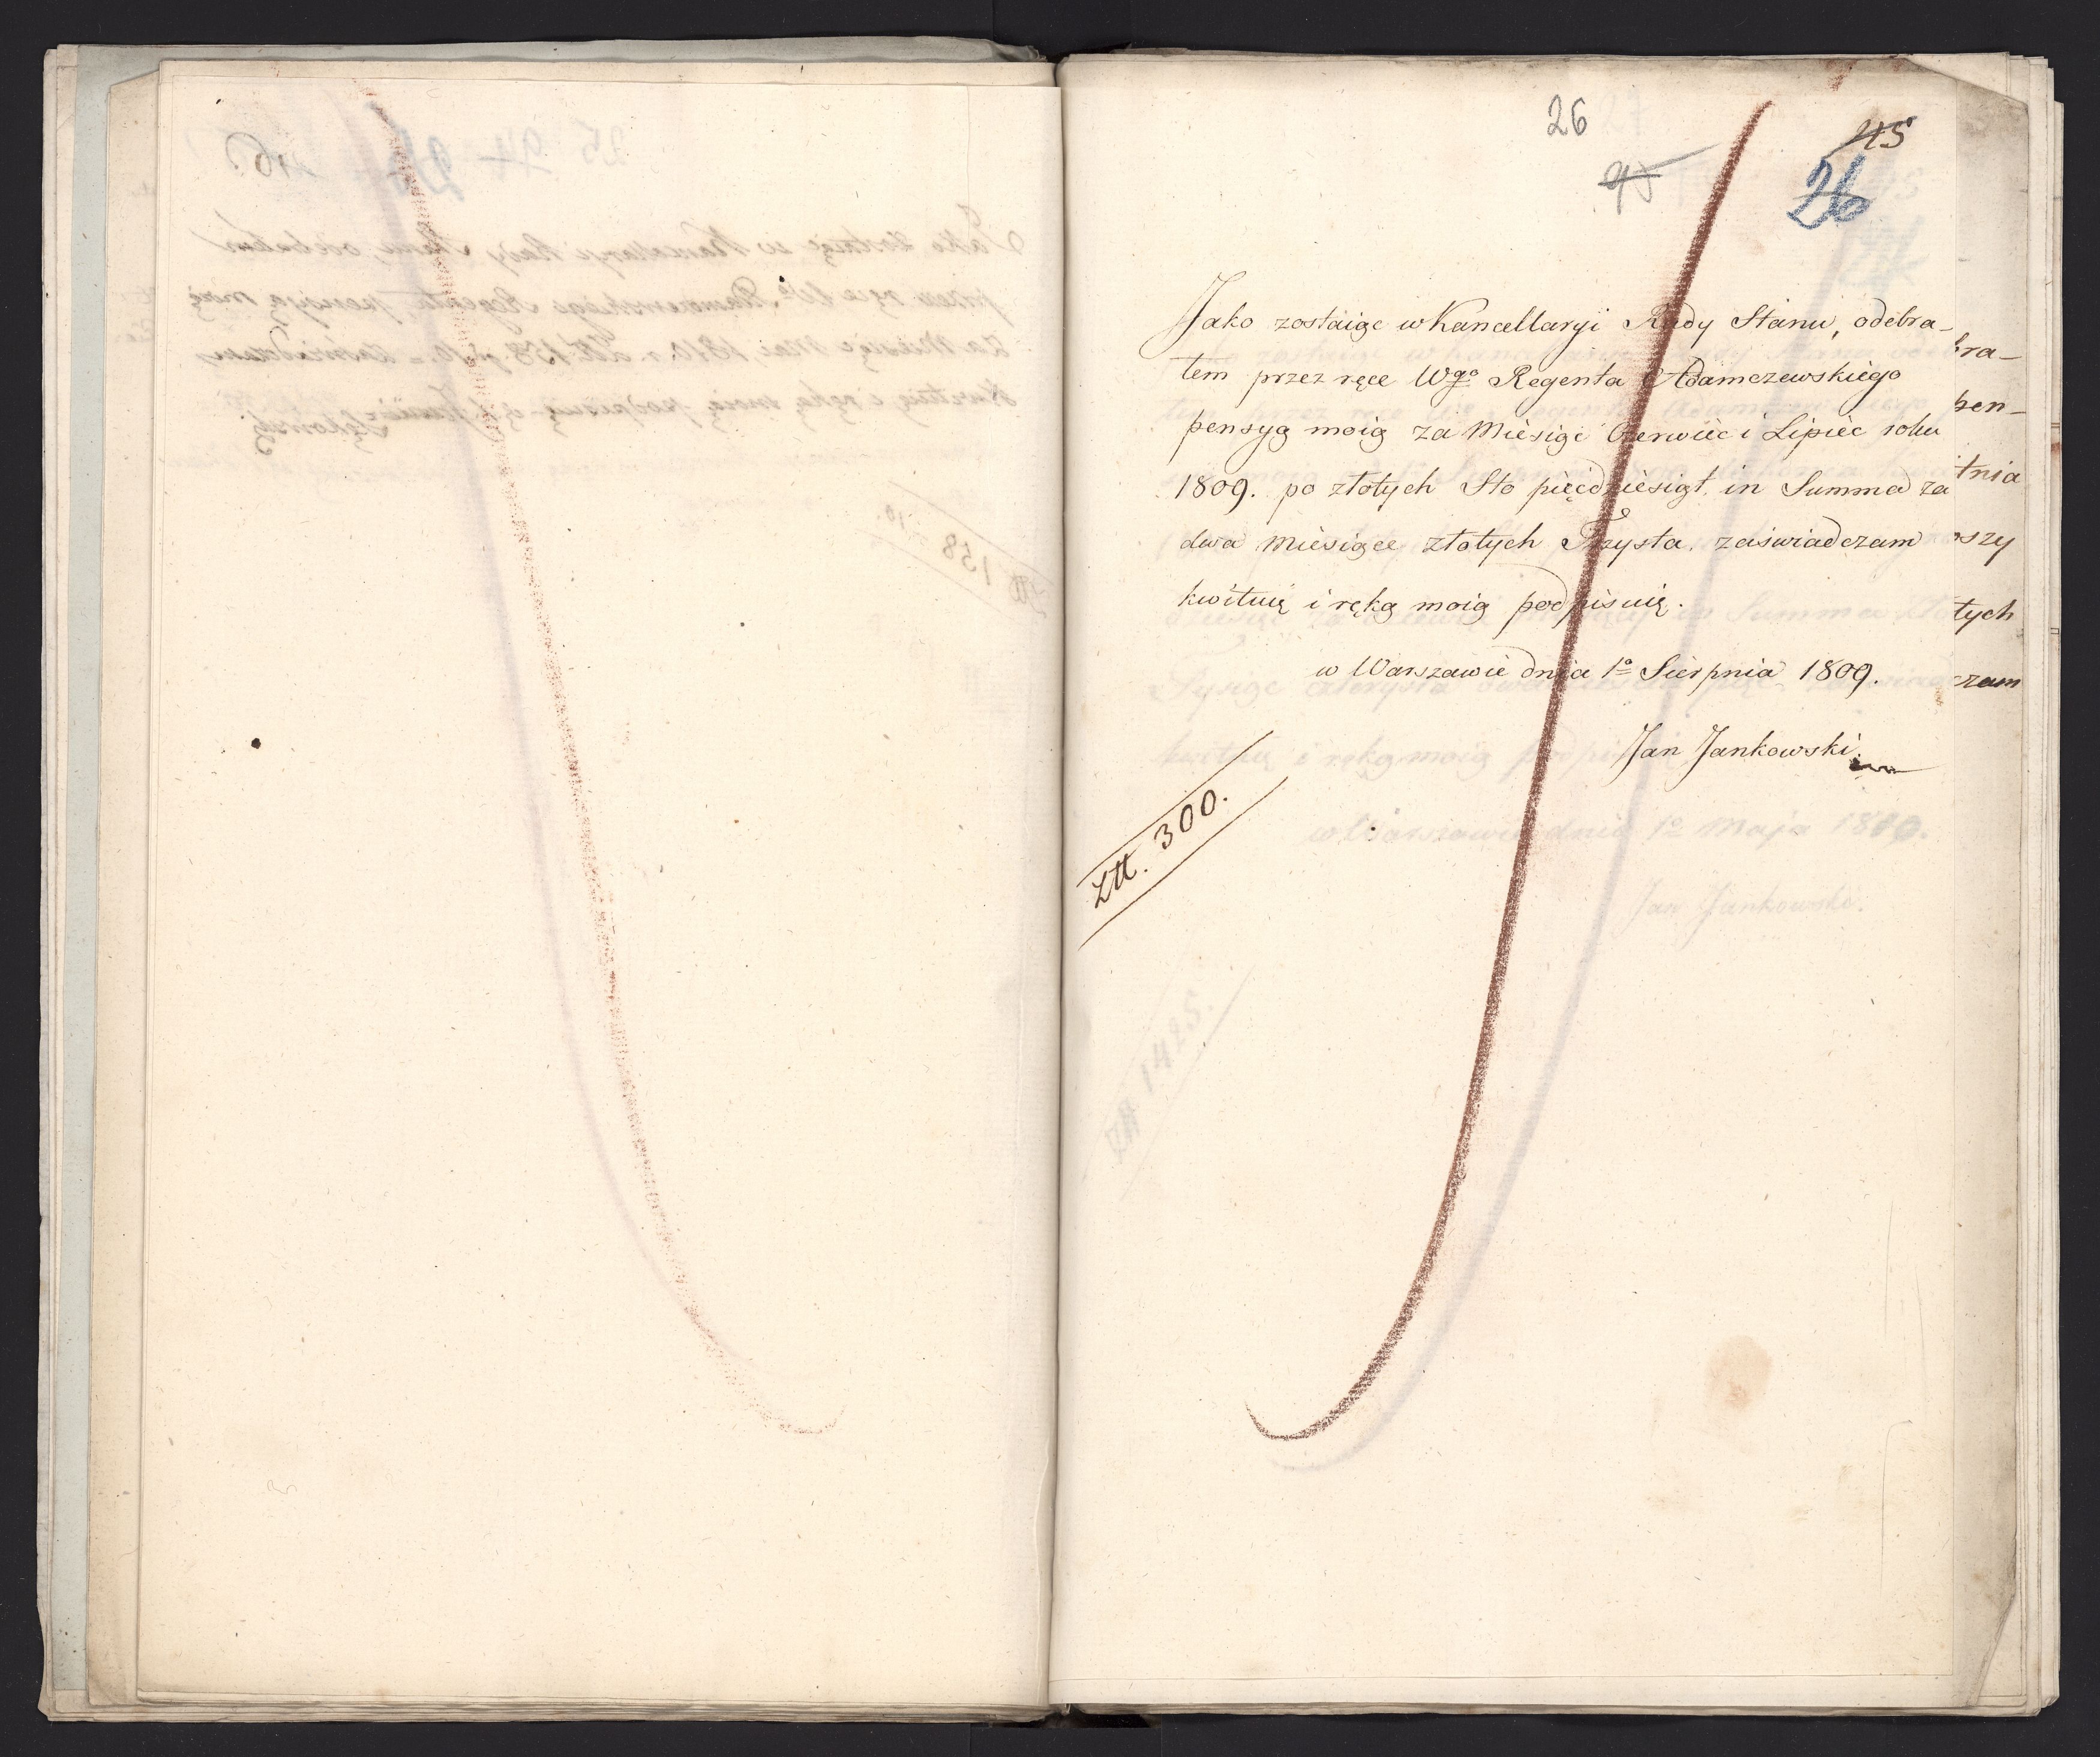 26
45
95
26
Jako zostaiąc w Kancellaryi Rady Stanu, odebra-
łem przez ręce Wgo Regenta Adamczewskiego
pensyą moią za Miesiąc Czerwiec i Lipiec roku
1809. po złotych Sto pięćdziesiąt, in Summa za
dwa Miesiące złotych Trzysta, zaświadczam
kwituię i ręką moią podpisuię.
w Warszawie dnia 1o Sierpnia 1809.
Jan Jankowski
Złł. 300.
bra-
pen-
tnia
szy
tych
czam